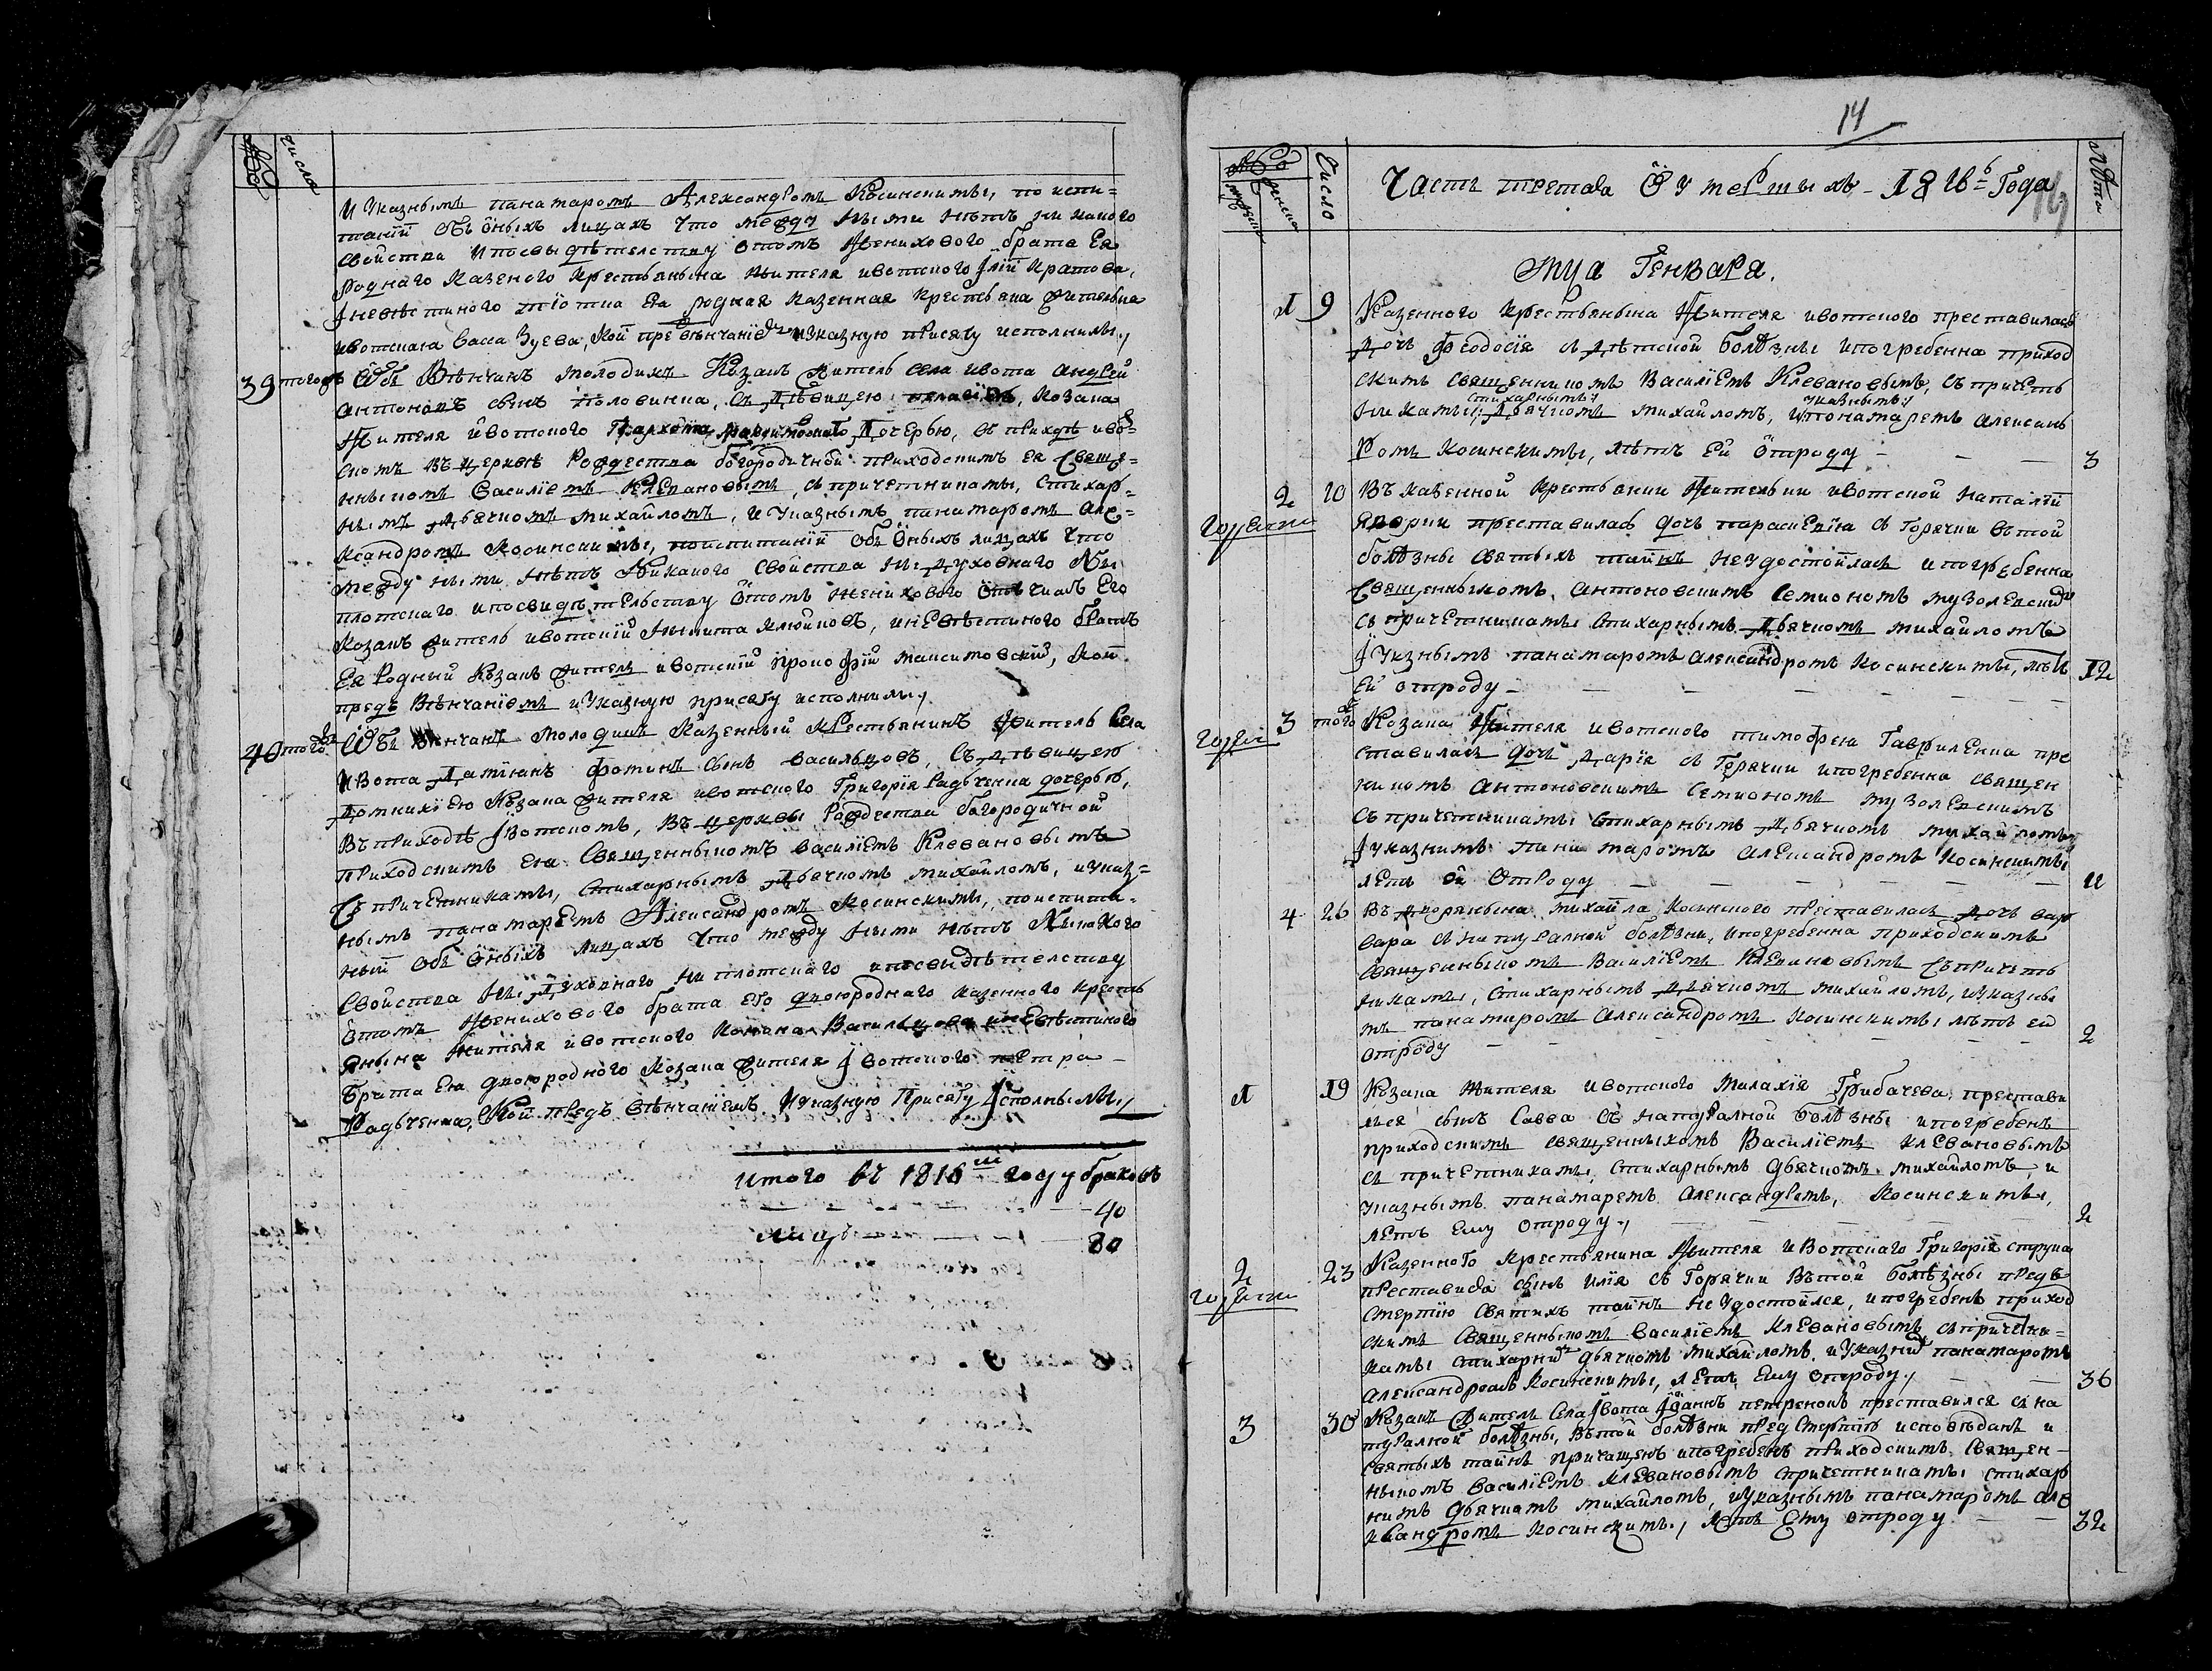 №
числа
и Указнымъ панамаромъ Александромъ Косинскимы, по испи=
таніи объ оныхъ лицахъ что между ными нѣтъ ни какого
свойства и посвыдѣтелству отомъ Женихового брата Ея
родного казеного крестьянына жителя ивотского Іліи Кратова,
Іневѣстиного тіотка ея родная казенная крестьяна жителька
ивотская Васса Зуева, кой пре вѣнчаніемъ и Указную присягу исполнилы,
39 тогожъ Объ Вѣнчанъ молодихъ Козакъ житель села ивота андрей
антоновъ сынъ половинка, съ Дѣвицею пелагіею, козака
Жителя ивотского Дочерью, въ приходѣ иво=
скомъ въ церквѣ Рождества богородичной приходскимъ ея Свяще=
нныкомъ Василіемъ Клевановымъ, съ причетникамы, стихар=
нымъ Дьячкомъ михайломъ, и Указнымъ панамаромъ але=
ксандромъ Косинскимы, поиспитаніи объ оныхъ лицахъ что
между ными нѣтъ Никакого свойства ны Духовного Ны
плотского и посвидѣтельству отомъ женихового отчимъ Его
козакъ житель ивотскій Никита клюйковъ, иневѣстиного братъ
Ея Родный Козакъ житель ивотскій прокофій максимовскій, кои
предъ Вѣнчаніемъ и Указную присягу исполнилы,
40 тогожъ Объ Вѣнчанъ молодикъ Казенный Крестьянинъ Житель села
Ивота Даміянъ фоминъ сынъ васильцовъ, съ Дѣвицею
Домникіею Козака жителя ивотского Григорія Радченка дочерью,
Въ приходѣ Івотскомъ, Въ церквы Рождества богородичной
приходскимъ ею Священныкомъ василіемъ Клевановымъ
Съ причетникамы, стихарнымъ Дьячкомъ михайломъ, и указ=
нымъ панамаремъ Александромъ Косинскимы, поиспита=
ніи объ оныхъ лицахъ что между ными нѣтъ Никакого
Свойства Ны Духовного ни плотского и посвыдѣтелству
отомъ Женихового брата его двоюродного казенного кресть
янына жителя ивотского Конона Васильцова иневѣстиного
брата Ею двоюродного Козака жителя Івотского петра
Радченка, Кой предъ Вѣнчаніемъ. И Указную Присягу Ісполнылы,
итого въ 1816 ш году браковъ
40
лицъ
80
14
Число
Часть третая О Умершыхъ 1816 Года
лѣта
мца Генваря.
1 9 Казенного крестьянына Жителя ивотского преставилась
Дочь Феодосія съ Дѣтской болѣзны и погребенна приход
скимъ священникомъ Василіемъ Клевановымъ, съ причеть
никамы, стихарнымъ Дьячкомъ михайломъ, указнымъ и понамаремъ алексань
Ромъ косинскимы, лѣтъ Ей отроду 3
2 20 Въ казенной крестьянки Жительки ивотской наталіи
преставилась дочь параскевія съ Горячки въ той
болѣзны святыхъ тайнъ не удостоилась и погребенна
Священныкомъ антоновскимъ Семиономъ музолевским
съ причетникамы стихарнымъ Дьячкомъ михайломъ
І Укзнымъ панамаромъ александромъ Косинскимы, лѣтъ
Ей отроду 12
3 тогожъ Козака Жителя ивотского тимофея Гавриленка пре
ставилась дочь Дарія съ Горячки и погребенна священ
никомъ антоновскимъ Семиономъ музолевскимъ
съ причетникамы стихарнымъ Дьячкомъ михайломъ
І указнимъ панамаромъ Александромъ Косинскимы
летъ ей отроду 11
4 26 Въ дворянына михайла косинского преставилась дочь вар
вара съ натуралной болѣзни, и погребенна приходскимъ
священныкомъ Василіемъ Клевановымъ съ причеть
никамы, стихарнымъ Дьячкомъ михайломъ, и указны
мъ панамаромъ Александромъ Косинскимы лѣтъ ей
отроду 2
1 19 Козака жителя ивотского малахія Грибачева, престави
лся сынъ савва съ натуралной болѣзны и погребенъ
приходскимъ священныкомъ Василіемъ клевановымъ
съ причетникамы, стихарнымъ дьячкомъ михайломъ и
указнымъ панамаремъ александремъ, косинскимы,
летъ Ему отроду, 2
2 23 Казенного крестьянина Жителя Ивотского Григорія струка
преставися сынъ илія съ Горячки Въ той болѣзны предъ
смертію святихъ тайнъ не удостоился, и погребенъ приход
скимъ священныкомъ василіемъ клевановымъ съ причетни=
камы стихарним дьячкомъ михайломъ и указним панамаромъ
александромъ Косинскимы, летъ ему отроду, 36
3 30 Козакъ Житель села Івота Іоаннъ петренокъ преставился съ на
туралной болѣзны, Въ той болѣзни пред смертію исповѣданъ и
святыхъ тайнъ причащенъ и погребенъ приходскимъ священ-
ныкомъ василіемъ клевановымъ спричетникамы стихар
нимъ дьячкомъ михайломъ, и указнымъ панамаромъ але
ксандромъ косинскимъ, летъ Ему отроду 32